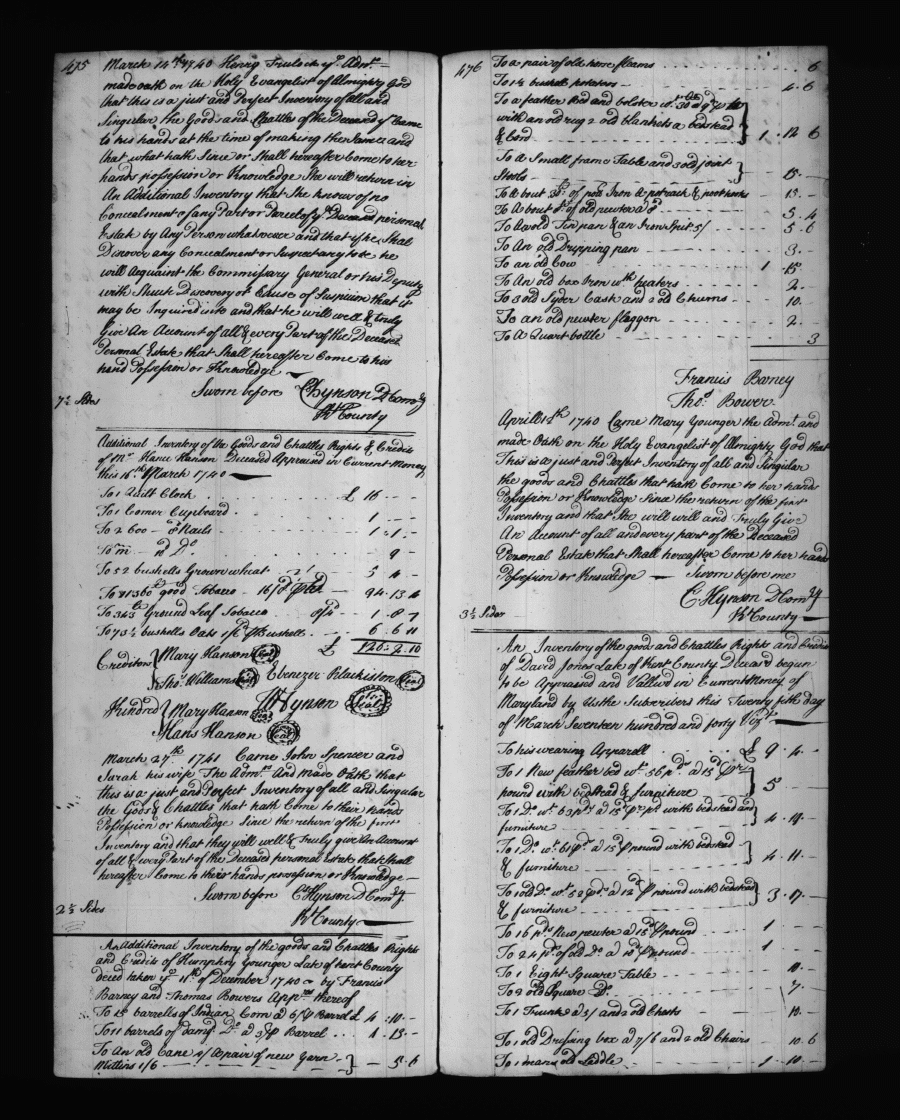 475
March 14th 1740 Henry Trulock ye Admr
made oath on the Holy Evangelist of Almighty God
that this is a just and Perfect Inventory of all and
Singular the Goods and Chattles of the Deceased yt Came
to his hands at the time of making the Same and
that what hath Since or Shall hereafter Come to her
hands possession or Knowledge She will return in
An Additional Inventory that She know of no
Concealment of any Part or Parcel of ye Deceased personal
Estate by Any Person whatsoever and that if he Shal
Discover any Concealment or Suspect any to be he
will Acquaint the Commissary General or his Deputy
with Such Discovery or Cause of Suspicion that it
may be Inquired into and that he will well & truly
Give An Account of all & every Part of the Deceased
Personal Estate that Shall hereafter Come to his
hand Possession or Knowledge
Sworn before C Hynson D Comry
7½ Sides
Kt County
Additional Inventory of the Goods and Chattles Rights & Credits
of Mr Hance Hanson Deceased Appraised in Current Money
this 16th March 1740
To 1 Quilt Clock £ 16 - -
To 1 Corner Cupboard 1 - -
To 2 600 - Nails 1 1 -
To m Do 9 -
To 52 bushells Grown wheat 2/ 5 4 -
To good Tobacco 94 13 4
To Ground Leaf Tobacco 1 8 7
To 73½ bushells Oats Bushell 6 6 11
£ 126 2 10
Creditors Mary Hanson Seal
Thos Williams Seal Ebenezer Blackiston Seal
Kindred Mary Hanson Seal Hynson Seal
Hans Hanson Seal
March 27th 1741 Came John Spencer and
Sarah his wife The Admrs And Made Oath that
this is a just and Perfect Inventory of all and Singular
the Goods & Chattles that hath Come to their hands
Possession or knowledge Since the return of the first
Inventory and that they will well & Truly give An Account
of all & every Part of the Deceased personal Estate that Shall
hereafter Come to their hands possession or Knowledge
Sworn before C Hynson D Comry
2½ Sides
Kt County
An Additional Inventory of the goods and Chattles Rights
and Credits of Humphry Younger Late of Kent County
deced taken ye 11th of December 1740 by Francis
Barney and Thomas Bowers Apprs thereof
To 15 barrells of Indian Corn a 6/ Barrel £ 4 10 -
To 11 barrels of damg Do a 3/ Barrel 1 13 -
To An old Cane / A pair of new Yarn
Mittins 1/6 3 6
476
To a pair of old horse fleams 6
To 1½ bushels potatoes 4 6
To a feather Bed and bolster wt
with an old rug 2 old blankets a bedstead
& Cord 1 12 6
To a Small frame Table and 3 old joint
Stools 15 -
To About of pot Iron A potrack & pot hooks 13 -
To About of old pewter 5 4
To An old Tin pan & an Iron Spit 5/ 5 6
To An old Dripping pan 3 -
To an old Cow 1 15 -
To An old box Iron wth heaters 2 -
To 3 old Syder Cask and 2 old Churns 10 -
To an old pewter flaggon 2 -
To A Quart bottle 3
Francis Barney
Thos Bower
April 12th 1740 Came Mary Younger the Admr and
made Oath on the Holy Evangelist of Almighty God that
This is a just and Perfect Inventory of all and Singular
the goods and Chattles that hath Come to her hands
Possession or Knowledge Since the return of the first
Inventory and that She will will and Truly Give
An Account of all and every part of the Deceased
Personal Estate that Shall hereafter Come to her hands
Possession or Knowledge Sworn before me
C Hynson D Comry
3½ Sides
Kt County
An Inventory of the goods and Chattles Rights and Credits
of David Jones Late of Kent County Deceasd begun
to be Appraised and Vallued in Current Money of
Maryland by us the Subscribers this Twenty fifth day
of March Seventeen hundred and forty Vizt
To his wearing Apparell £ 9 4 -
To 1 New feather bed wt 56 pd a 15d pr
pound with bedstead & furniture 5 -
To 1 Do wt 63 pds a 15d pr pd with bedstead and
furniture 4 14 -
To 1 Do wt 61 pd a 15 pound with bedstead
& furniture 4 11 -
To 1 old Do wt 52 pds a 12d pound with bedstead
& furniture 3 17 -
To 16 pds New pewter a 15d pound 1 -
To 24 pds of old Do a 10d pound 1 -
To 1 Eight Square Table 10 -
To 2 old Square Do 7 -
To 1 Trunk a 5/ and 2 old Chests 10 -
To 1 old Dressing box a 7/6 and 2 old Chairs 10 6
To 1 mans old Saddle 1 10 -